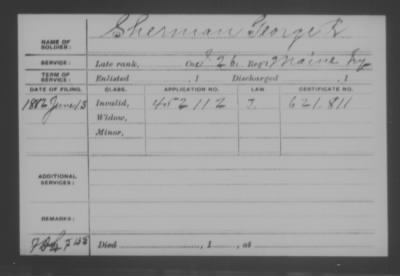 NAME OF SOLDIER: Sherman George
SERVICE: Late rank, Co. 26 Reg't Maine Inf
TERM OF SERVICE: Enlisted , 1 Discharged , 1
DATE OF FILING. CLASS. APPLICATION NO. LAW. CERTIFICATE NO.
1882 June 13 Invalid, 452112 621.811
Widow,
Minor,
ADDITIONAL SERVICES:
REMARKS:
Died , 1 , at